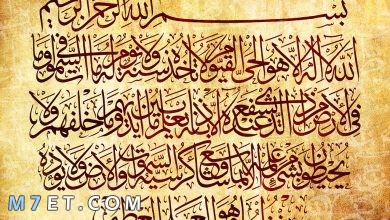 بسم الله الرحمن الرحيم
الله لا إله إلا هو الحي القيوم لا تأخذه سنة ولا نوم له ما في السموات وما
في الأرض من ذا الذي يشفع عنده إلا بإذنه يعلم ما بين أيديهم وما خلفهم ولا
يحيطون بشيء من علمه إلا بما شاء وسع كرسيه السموات والأرض ولا يؤده
M7ET.COM